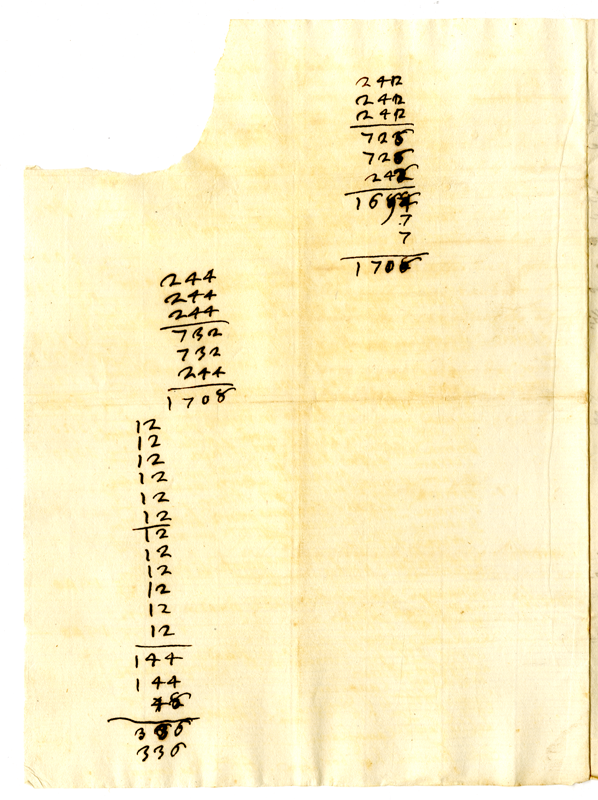 242
242
242
726
726
242
1694
7
7
1708
244
244
244
732
732
244
1708
12
12
12
12
12
12
12
12
12
12
12
12
144
144
48
336
336